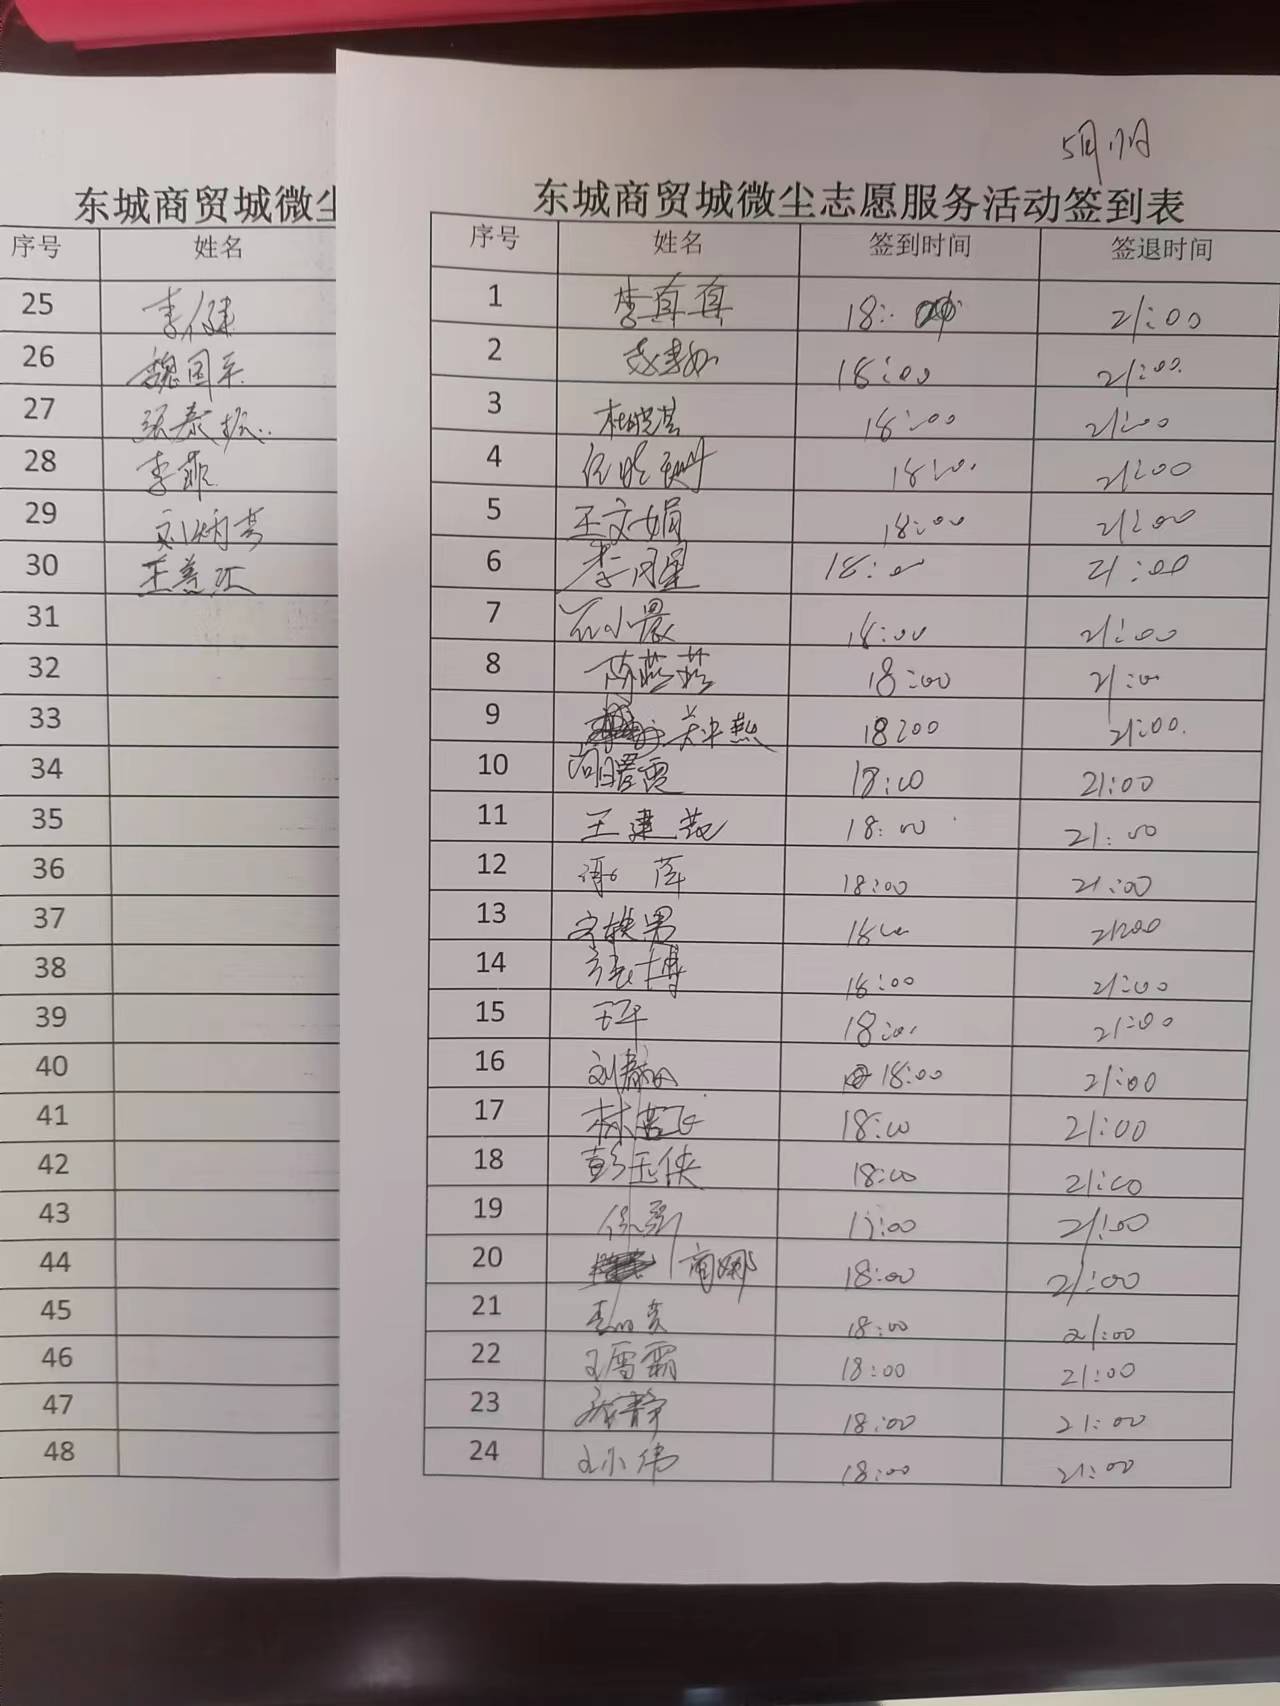 5月17日
东城商贸城微尘
序号 姓名
25 李健
26 魏国平
27 张泰振
28 李菲
29 刘炳芳
30 王善江
31
32
33
34
35
36
37
38
39
40
41
42
43
44
45
46
47
48
东城商贸城微尘志愿服务活动签到表
序号 姓名 签到时间 签退时间
1 李真真 18:00 21:00
2 18:00 21:00
3 杜晓芸 18:00 21:00
4 18:00 21:00
5 王文娟 18:00 21:00
6 李风星 18:00 21:00
7 石小晨 18:00 21:00
8 陈苾苾 18:00 21:00
9 关平燕 18:00 21:00
10 18:00 21:00
11 王建茂 18:00 21:00
12 谭萍 18:00 21:00
13 宁轶男 18:00 21:00
14 张博 18:00 21:00
15 王平 18:00 21:00
16 18:00 21:00
17 林雪飞 18:00 21:00
18 彭玉侠 18:00 21:00
19 21:00
20 商娜 18:00 21:00
21 18:00 21:00
22 王雪霸 18:00 21:00
23 静 18:00 21:00
24 王小伟 18:00 21:00